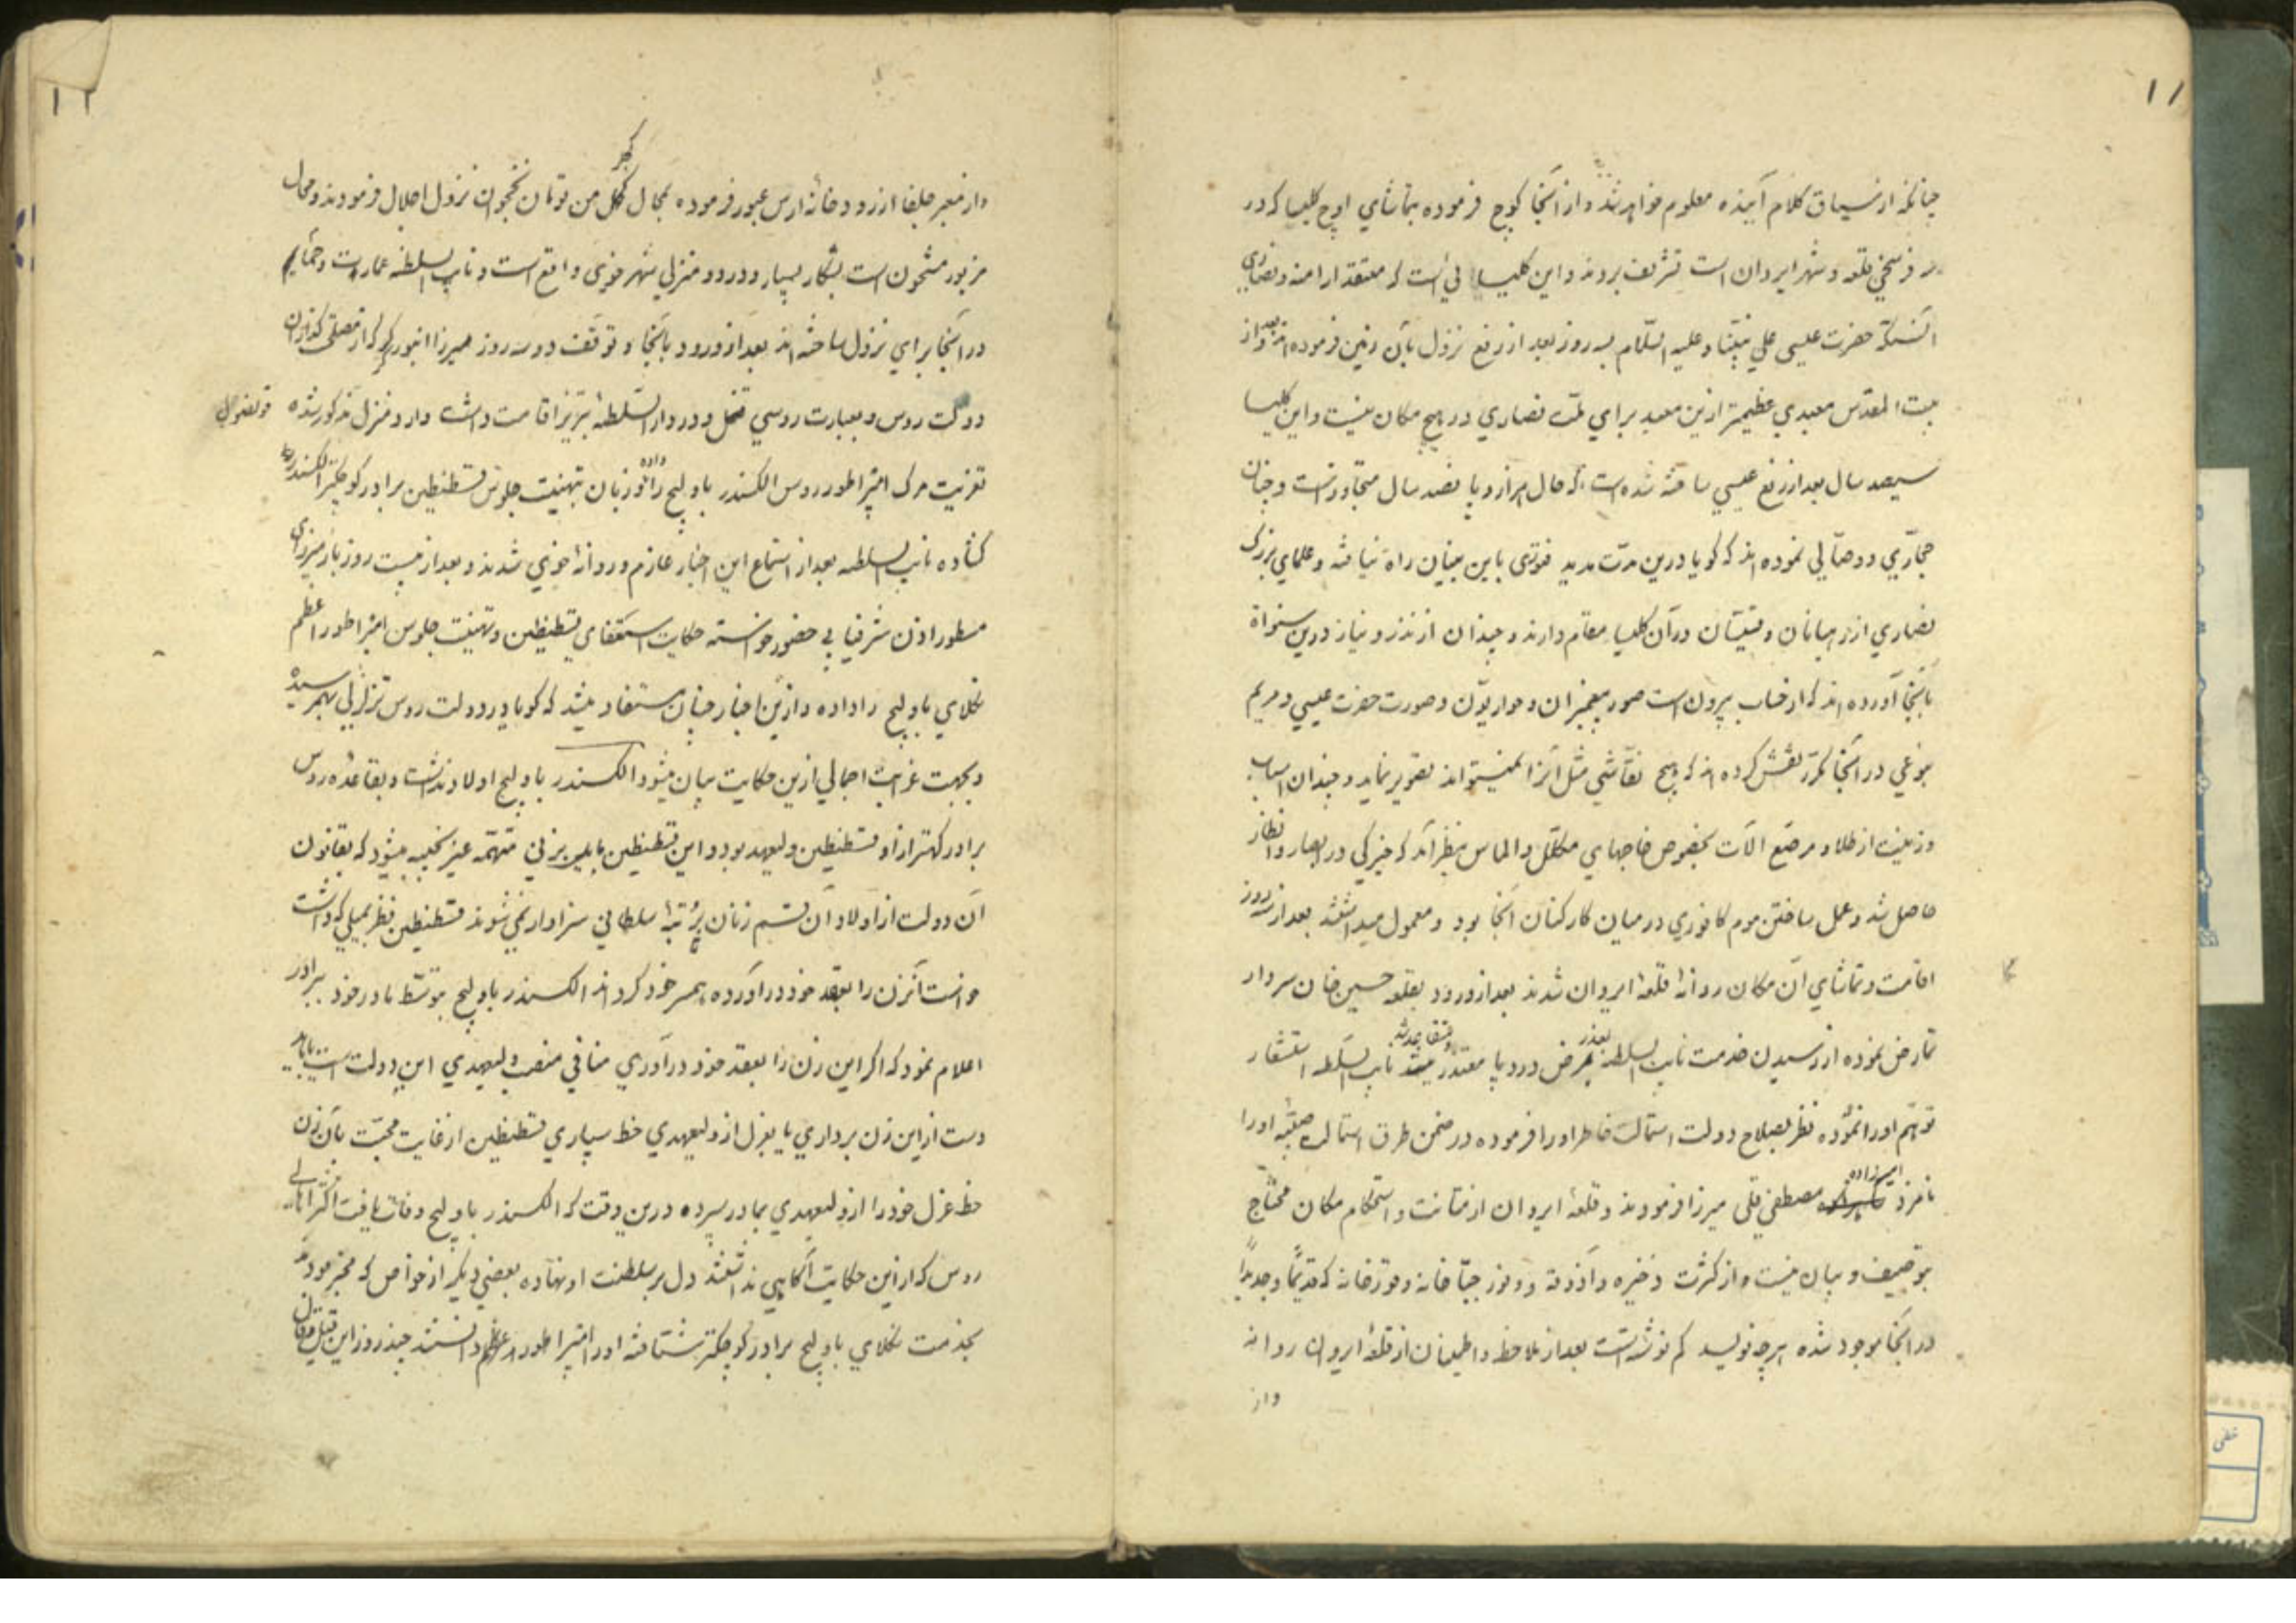 ۱۱
چنانکه از سیاق کلام آینده معلوم خواهد شد و از آنجا کوچ فرموده بتماشای اوچ کلیسا که در
فرسخی قلعه و شهر ایروان است تشریف بردند و این کلیسا است که معتقد ارامنه و نصاری
آنستکه حضرت عیسی علی نبینا و علیه السلام سه روز بعد از رفع نزول بآن زمین فرموده اند و بعد از
بیت المقدس معبدی عظیمتر ازین معبد برای ملت نصاری در هیچ مکان نیست و این کلیسا
سیصد سال بعد از رفع عیسی ساخته شده است که حال هزار و پانصد سال متجاوز است و چنان
حجاری و وصالی نموده اند که کویا درین مدت مدید فتوری باین بنیان راه نیافته و علمای بزرک
نصاری از رهبانان و قسیسان در آن کلیسا مقام دارند و چندان از نذر و نیاز درین سنوات
بآنجا آورده اند که از حساب بیرون است صور پیغمبران و حواریون و صورت حضرت عیسی و مریم
بنوعی در آنجا مکرر نقش کرده اند که هیچ نقاشی مثل آنرا نمیتواند تصویر نماید و چندان اسباب
و زینت از طلا و مرصع آلات بخصوص خاجهای مکلل و الماس بنظر آمد که خیرکی در ابصار و انظار
حاصل شد و عمل ساختن موم کافوری در میان کارکنان آنجا بود و معمول میداشتند بعد از سه روز
اقامت و تماشای آن مکان روانه قلعه ایروان شدند بعد از ورود بقلعه حسین خان سردار
تمارض نموده از رسیدن خدمت نایب السلطنه بعذر مرض درد پا معتذر و متقاعد شد نایب السلطنه استشعار
توهم او را نموده نظر بصلاح دولت استمالت خاطر او را فرموده در ضمن طرق استمالت صبیه او را
نامزد امیرزاده مصطفی قلی میرزا فرمودند و قلعه ایروان از متانت و استحکام مکان محتاج
بتوصیف و بیان نیست و از کثرت ذخیره و آذوقه و وفور جباخانه و قورخانه که قدیماً و جدیداً
در آنجا موجود شده هرچه نویسد کم نوشته است بعد از ملاحظه و اطمینان از قلعه ایروان روانه
و از
۱۲
و از معبر جلفا از رودخانه ارس عبور فرموده بمحال کرکر من تومان نخجوان نزول اجلال فرمودند و محال
مزبور مشحون است بشکار بسیار و در دو منزلی شهر خوی واقع است و نایب السلطنه عمارت و حمام
در آنجا برای نزول ساخته اند بعد از ورود بآنجا و توقف دو سه روز میرزا انبورکر که از مصلحت کذاران
دولت روس و بعبارت روسی قونصول و در دار السلطنه تبریز اقامت داشت وارد منزل مذکور شده
تعزیت مرک امپراطور روس الکسندر باولیچ را داده و زبان بتهنیت جلوس قسطنطین برادر کوچکتر الکسندر
کشاده نایب السلطنه بعد از استماع این اخبار عازم و روانه خوی شدند و بعد از بیست روز باز میرزای
مسطور اذن شرفیابی حضور خواسته حکایت استعفای قسطنطین و تهنیت جلوس امپراطور اعظم
نکلای باولیچ را داده و ازین اخبار چنان مستفاد میشد که کویا در دولت روس تزلزلی بهم رسیده
و بجهت غرابت اجمالی ازین حکایت بیان میشود الکسندر باولیچ اولاد نداشت و بقاعده روس
برادر کهتر از او قسطنطین ولیعهد بود و این قسطنطین مایل بزنی متهمه غیر نجیبه میشود که بقانون
آن دولت از اولاد آن قسم زنان برتبه سلطانی سزاوار نمی شوند قسطنطین نظر بمیلی که داشت
خواست آنزن را بعقد خود در آورده همسر خود کرداند الکسندر باولیچ بتوسط مادر خود ببرادر
اعلام نمود که اکر این زن را بعقد خود درآوری منافی منصب ولیعهدی این دولت است یا باید
دست از این زن برداری یا بعزل از ولیعهدی خط سپاری قسطنطین از غایت محبت بآن زن
خط عزل خود را از ولیعهدی بمادر سپرده درین وقت که الکسندر باولیچ وفات یافت اکثر اهالی
روس که ازین حکایت آکاهی نداشتند دل بر سلطنت او نهاده بعضی دیکر از خواص که مخبر بودند
بخدمت نکلای باولیچ برادر کوچکتر شتافته او را امپراطور اعظم دانستند چند روز این قیل و قال